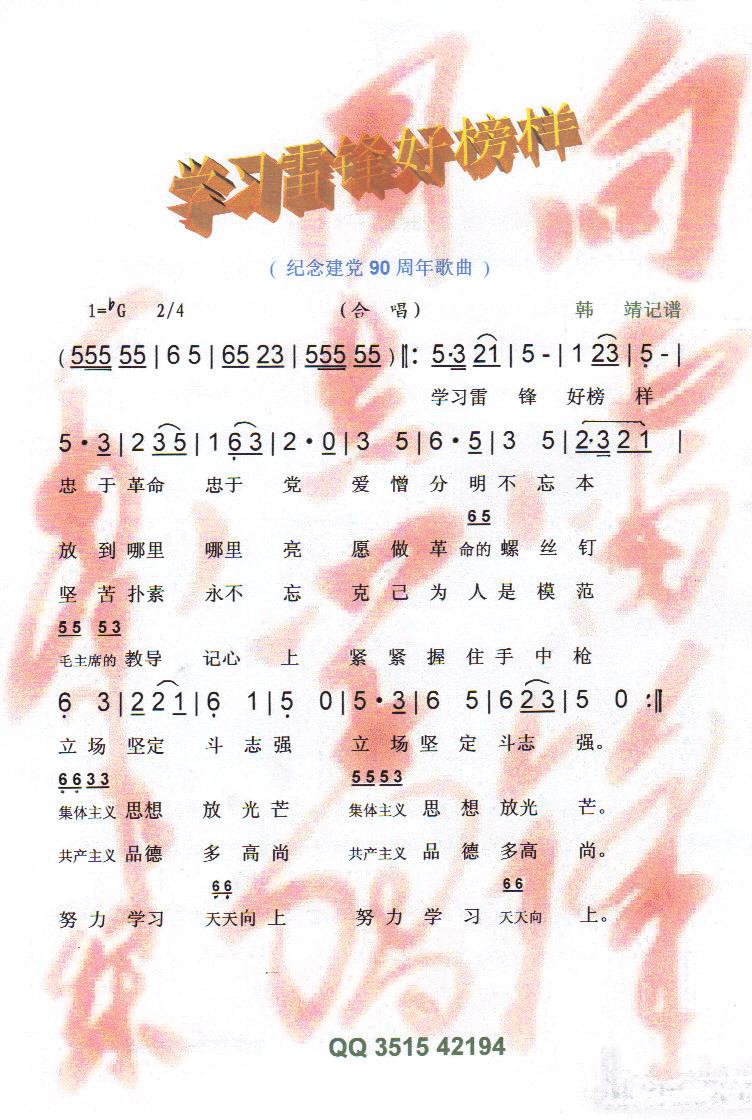 学习雷锋好榜样
( 纪念建党 90 周年歌曲 )
1=♭G 2/4 (合 唱) 韩 靖记谱
( 555 55 | 6 5 | 65 23 | 555 55 ) ‖: 5·3 21 | 5 - | 1 23 | 5 - |
学习雷 锋 好榜 样
5 · 3 | 2 35 | 1 63 | 2 · 0 | 3 5 | 6 · 5 | 3 5 | 2·3 21 |
忠 于 革命 忠于 党 爱 憎 分 明 不 忘 本
65
放 到 哪里 哪里 亮 愿 做 革 命的 螺 丝 钉
坚 苦 扑素 永不 忘 克 己 为 人 是 模 范
55 53
毛主席的 教导 记心 上 紧 紧 握 住 手 中 枪
6 3 | 2 2 1 | 6 1 | 5 0 | 5 · 3 | 6 5 | 6 23 | 5 0 :‖
立 场 坚定 斗 志 强 立 场 坚 定 斗志 强。
66 33 55 53
集体主义 思想 放 光 芒 集体主义 思 想 放光 芒。
共产主义 品德 多 高 尚 共产主义 品 德 多高 尚。
66 66
努 力 学习 天天向 上 努 力 学 习 天天向 上。
QQ 3515 42194